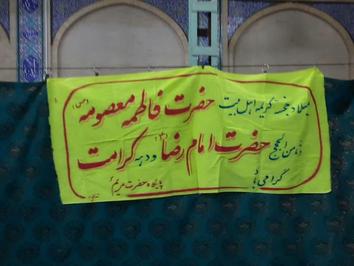 میلاد خجسته کریمه اهل بیت حضرت فاطمه معصومه (س)
ثامن الحجج حضرت امام رضا (ع) و دهه کرامت
گرامی باد
پایگاه حضرت مریم